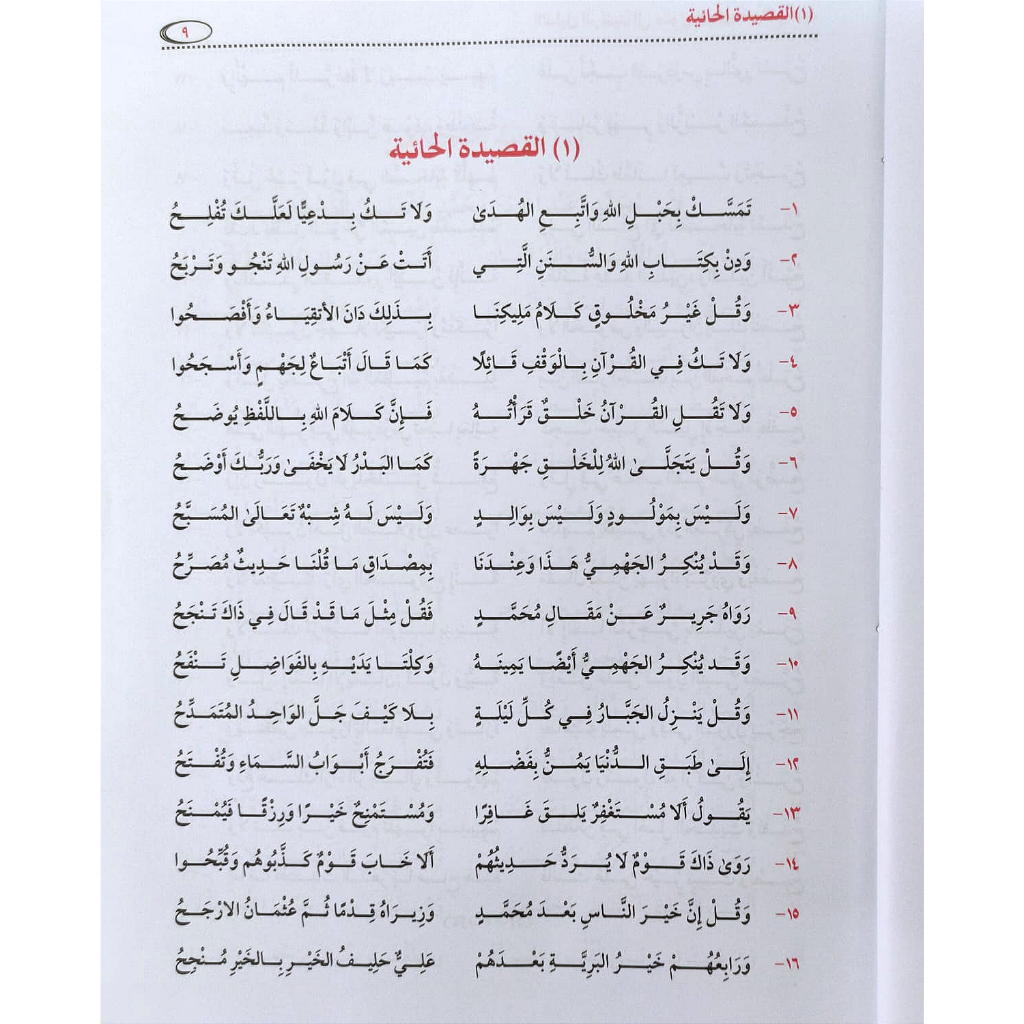 (١) القصيدة الحائية
٩
(١) القصيدة الحائية
١- تَمَسَّكْ بِحَبْلِ اللهِ وَاتَّبِعِ الهُدَىٰ وَلَا تَكُ بِدْعِيًّا لَعَلَّكَ تُفْلِحُ
٢- وَدِنْ بِكِتَابِ اللهِ وَالسُّنَنِ الَّتِي أَتَتْ عَنْ رَسُولِ اللهِ تَنْجُو وَتَرْبَحُ
٣- وَقُلْ غَيْرُ مَخْلُوقٍ كَلَامُ مَلِيكِنَا بِذَلِكَ دَانَ الأتقِيَاءُ وَأَفْصَحُوا
٤- وَلَا تَكُ فِي القُرْآنِ بِالْوَقْفِ قَائِلًا كَمَا قَالَ أَتْبَاعٌ لِجَهْمٍ وَأَسْجَحُوا
٥- وَلَا تَقُلِ القُرْآنُ خَلْقٌ قَرَأْتُهُ فَإِنَّ كَلَامَ اللهِ بِاللَّفْظِ يُوضَحُ
٦- وَقُلْ يَتَجَلَّىٰ اللهُ لِلْخَلْقِ جَهْرَةً كَمَا البَدْرُ لَا يَخْفَىٰ وَرَبُّكَ أَوْضَحُ
٧- وَلَيْسَ بِمَوْلُودٍ وَلَيْسَ بِوَالِدٍ وَلَيْسَ لَهُ شِبْهٌ تَعَالَىٰ المُسَبَّحُ
٨- وَقَدْ يُنْكِرُ الجَهْمِيُّ هَذَا وَعِنْدَنَا بِمِصْدَاقِ مَا قُلْنَا حَدِيثٌ مُصَرِّحُ
٩- رَوَاهُ جَرِيرٌ عَنْ مَقَالِ مُحَمَّدٍ فَقُلْ مِثْلَ مَا قَدْ قَالَ فِي ذَاكَ تَنْجَحُ
١٠- وَقَد يُنْكِرُ الجَهْمِيُّ أَيْضًا يَمِينَهُ وَكِلْتَا يَدَيْهِ بِالفَوَاضِلِ تَنْفَحُ
١١- وَقُلْ يَنْزِلُ الجَبَّارُ فِي كُلِّ لَيْلَةٍ بِلَا كَيْفَ جَلَّ الوَاحِدُ المُتَمَدِّحُ
١٢- إِلَىٰ طَبَقِ الدُّنْيَا يَمُنُّ بِفَضْلِهِ فَتُفْرَجُ أَبْوَابُ السَّمَاءِ وَتُفْتَحُ
١٣- يَقُولُ أَلَا مُسْتَغْفِرٌ يَلقَ غَافِرًا وَمُسْتَمْنِحٌ خَيْرًا وَرِزْقًا فَيُمْنَحُ
١٤- رَوَىٰ ذَاكَ قَوْمٌ لَا يُرَدُّ حَدِيثُهُمْ أَلَا خَابَ قَوْمٌ كَذَّبُوهُم وَقُبِّحُوا
١٥- وَقُلْ إِنَّ خَيْرَ النَّاسِ بَعْدَ مُحَمَّدٍ وَزِيرَاهُ قِدْمًا ثُمَّ عُثْمَانُ الارْجَحُ
١٦- وَرَابِعُهُمْ خَيْرُ البَرِيَّةِ بَعْدَهُمْ عَلِيٌّ حَلِيفُ الخَيْرِ بِالخَيْرِ مُنْجِحُ